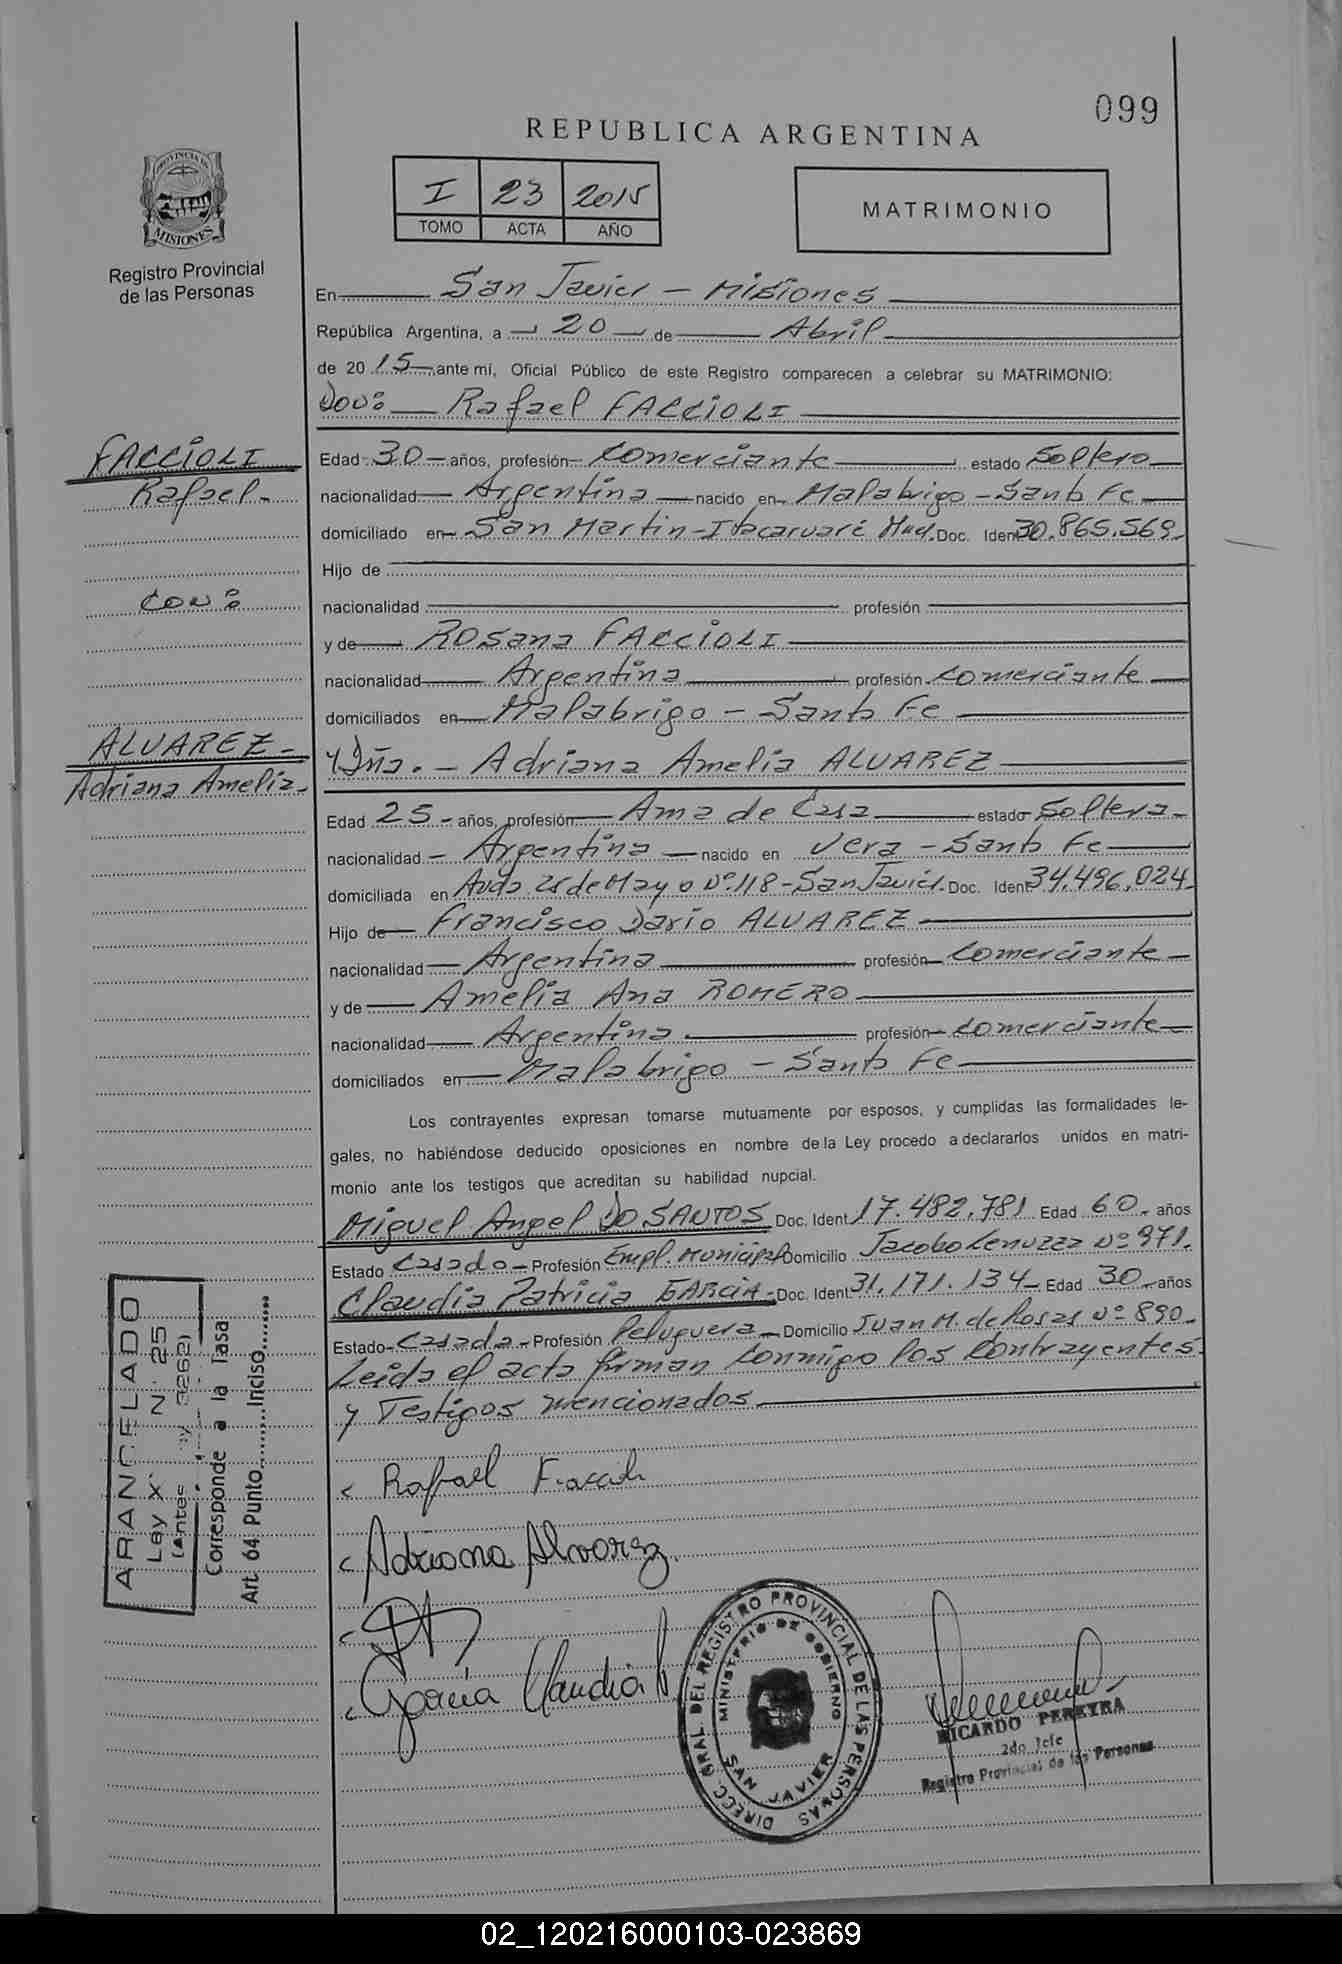 099
REPUBLICA ARGENTINA
I 23 2015
TOMO ACTA AÑO
MATRIMONIO
PROVINCIA DE MISIONES
Registro Provincial
de las Personas
En San Javier - Misiones
República Argentina, a 20 de Abril
de 2015, ante mí, Oficial Público de este Registro comparecen a celebrar su MATRIMONIO:
Don: Rafael FACCIOLI
FACCIOLI
Rafael.
Con:
ALVAREZ -
Adriana Amelia.
Edad 30 años, profesión Comerciante estado Soltero
nacionalidad Argentina nacido en Malabrigo - Santa Fe
domiciliado en San Martin - Itacaruaré Doc. Ident 30.865.569.
Hijo de
nacionalidad profesión
y de Rosana FACCIOLI
nacionalidad Argentina profesión Comerciante
domiciliados en Malabrigo - Santa Fe
y Dña. - Adriana Amelia ALVAREZ
Edad 25 - años, profesión Ama de Casa estado Soltera
nacionalidad - Argentina nacido en Vera - Santa Fe
domiciliada en Avda 25 de Mayo Nº 118 - San Javier. Doc. Ident 34.496.024
Hijo de Francisco Dario ALVAREZ
nacionalidad Argentina profesión Comerciante
y de Amelia Ana ROMERO
nacionalidad Argentina profesión Comerciante
domiciliados en Malabrigo - Santa Fe
Los contrayentes expresan tomarse mutuamente por esposos, y cumplidas las formalidades le-
gales, no habiéndose deducido oposiciones en nombre de la Ley procedo a declararlos unidos en matri-
monio ante los testigos que acreditan su habilidad nupcial.
Miguel Angel DO SANTOS Doc. Ident 17.482.781 Edad 60 años
Estado Casado - Profesión Empl. Municipal Domicilio Jacobo Nº 971.
Claudia Patricia GARCIA - Doc. Ident 31.171.134 - Edad 30 años
Estado Casada - Profesión Peluquera Domicilio Juan M. de Rosas Nº 890.
Leida el acta firman conmigo los Contrayentes
y Testigos mencionados
ARANCELADO
Ley X N. 25
(Antes Ley 3262)
Corresponde a la Tasa
Art. 64 Punto Inciso
Rafael
Adriana Alvarez
Garcia Claudia P
DIRECC. GRAL. DEL REGISTRO PROVINCIAL DE LAS PERSONAS
MINISTERIO DE GOBIERNO
SAN JAVIER
RICARDO PEREYRA
2do Jefe
Registro Provincial de las Personas
02_120216000103-023869